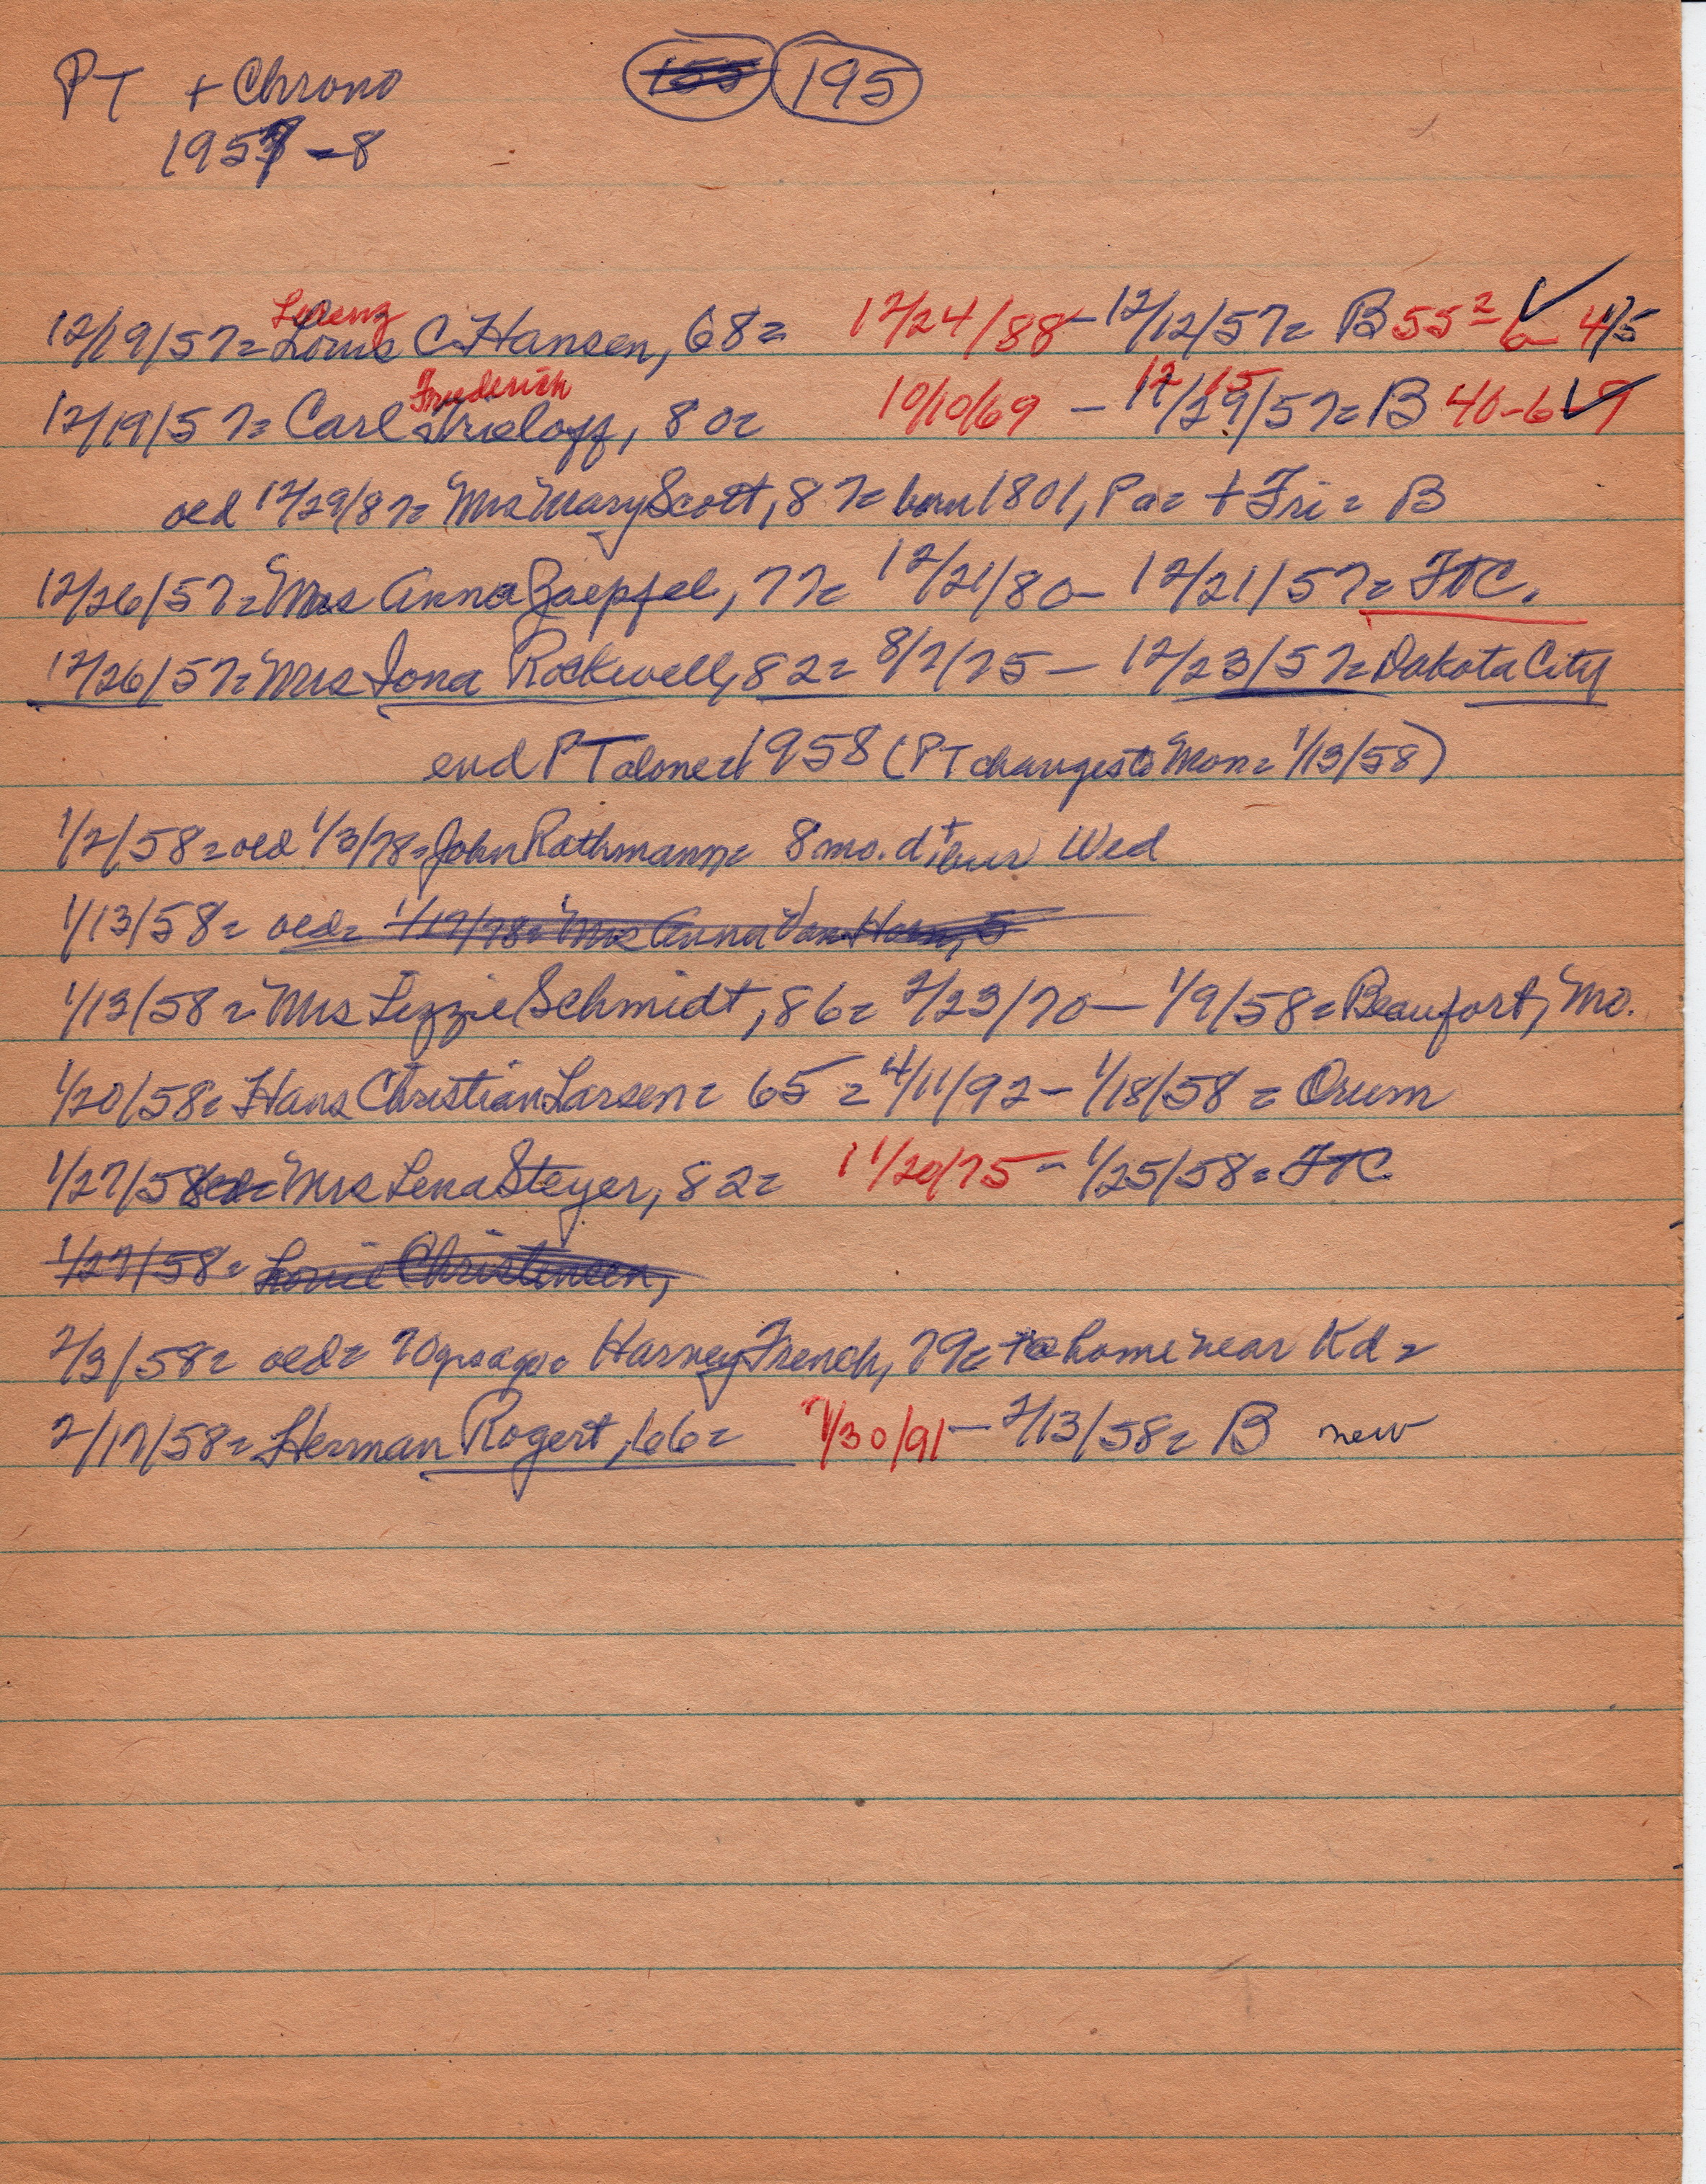 PT + Chrono 155 195
1957-8
Lorenz
12/19/57= Louis C. Hansen, 68= 12/24/88 - 12/12/57= B 55= 2 6 4/5
Friederich 12 15
12/19/57= Carl Frieloff, 80= 10/10/69 - 12/29/57= B 40-6-9
old 12/29/87= Mrs Mary Scott, 87= born 1801, Pa= + Fri= B
12/26/57= Mrs Anna Zaepfel, 77= 12/21/80 - 12/21/57= FTC.
12/26/57= Mrs Iona Rockwell, 82= 8/2/75 - 12/23/57= Dakota City
end PT alone 1958 (PT changes to Mon= 1/13/58)
1/2/58= old 1/3/78= John Rathmann= 8 mo. d + bur Wed
1/13/58= old= 1/17/78= Mrs Anna Van Horn, 5
1/13/58= Mrs Lizzie Schmidt, 86= 2/23/70 - 1/9/58= Beaufort, Mo.
1/20/58= Hans Christian Larsen= 65= 4/11/92 - 1/18/58= Orum
1/27/58= Mrs Lena Steyer, 82= 11/20/75 - 1/25/58= FTC
1/27/58= Louie Christensen,
2/3/58= old= 70 yrs ago= Harvey French, 79= home near Kd=
2/17/58= Herman Rogert, 66= 7/30/91 - 2/13/58= B new